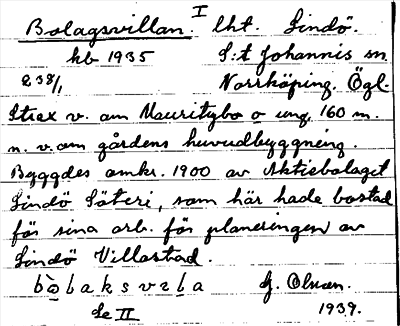 I
Bolagsvillan. lht. Lindö.
hb 1935 S:t Johannis sn
238/1 Norrköping. Ögl.
Strax v. om Mauritzbo o ung. 160 m.
n. v. om gårdens huvudbyggning.
Byggdes omkr. 1900 av Aktiebolaget
Lindö Säteri, som här hade bostad
för sina arb. för planeringen av
Lindö Villastad.
G. Olson.
Se II 1939.